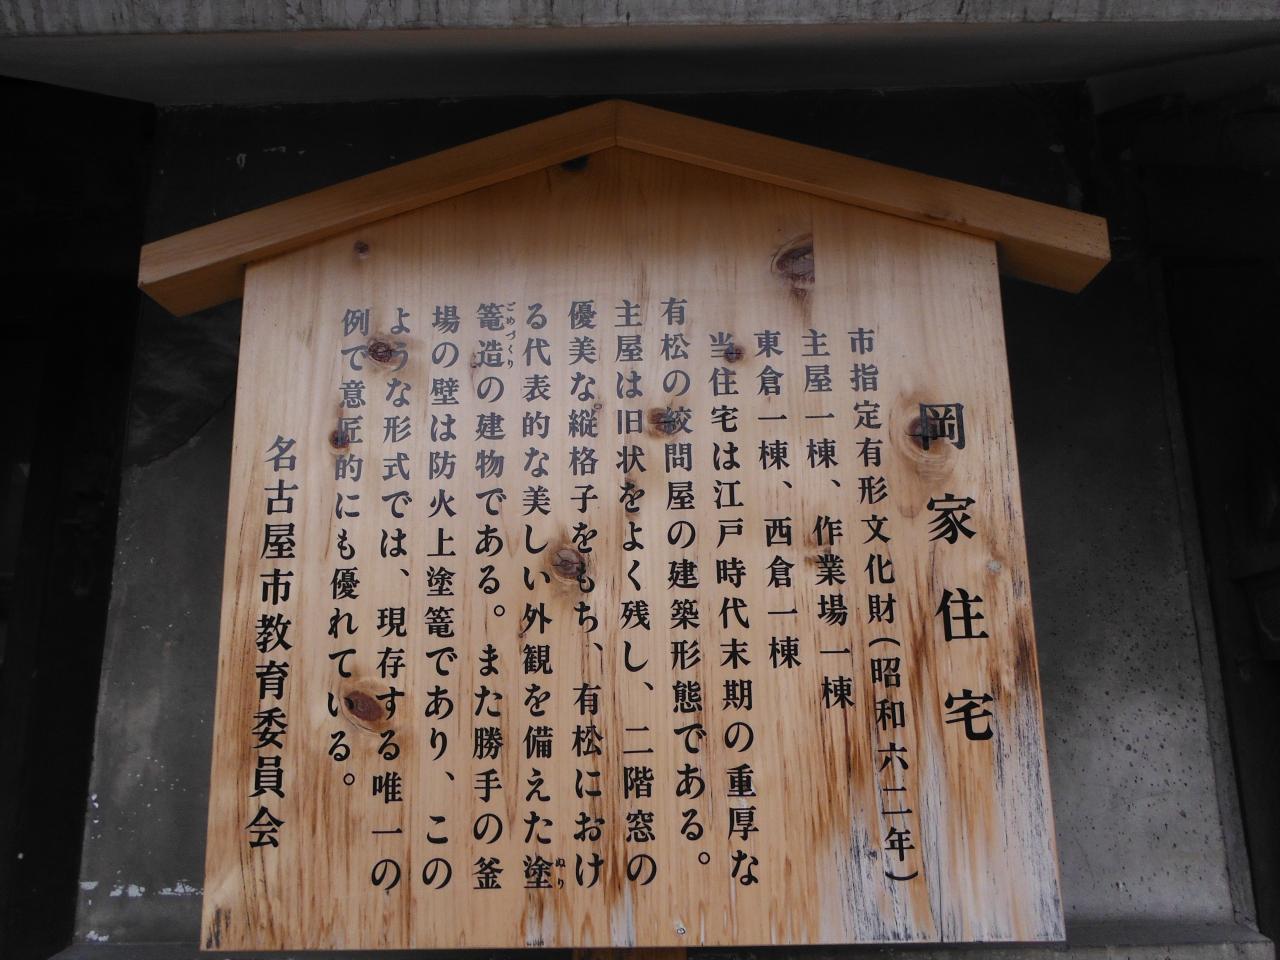 岡家住宅
市指定有形文化財(昭和六二年)
主屋一棟、作業場一棟
東倉一棟、西倉一棟
当住宅は江戸時代末期の重厚な
有松の絞問屋の建築形態である。
主屋は旧状をよく残し、二階窓の
優美な縦格子をもち、有松におけ
る代表的な美しい外観を備えた塗
篭造の建物である。また勝手の釜
場の壁は防火上塗篭であり、この
ような形式では、現存する唯一の
例で意匠的にも優れている。
名古屋市教育委員会
ぬり
ごめづくり